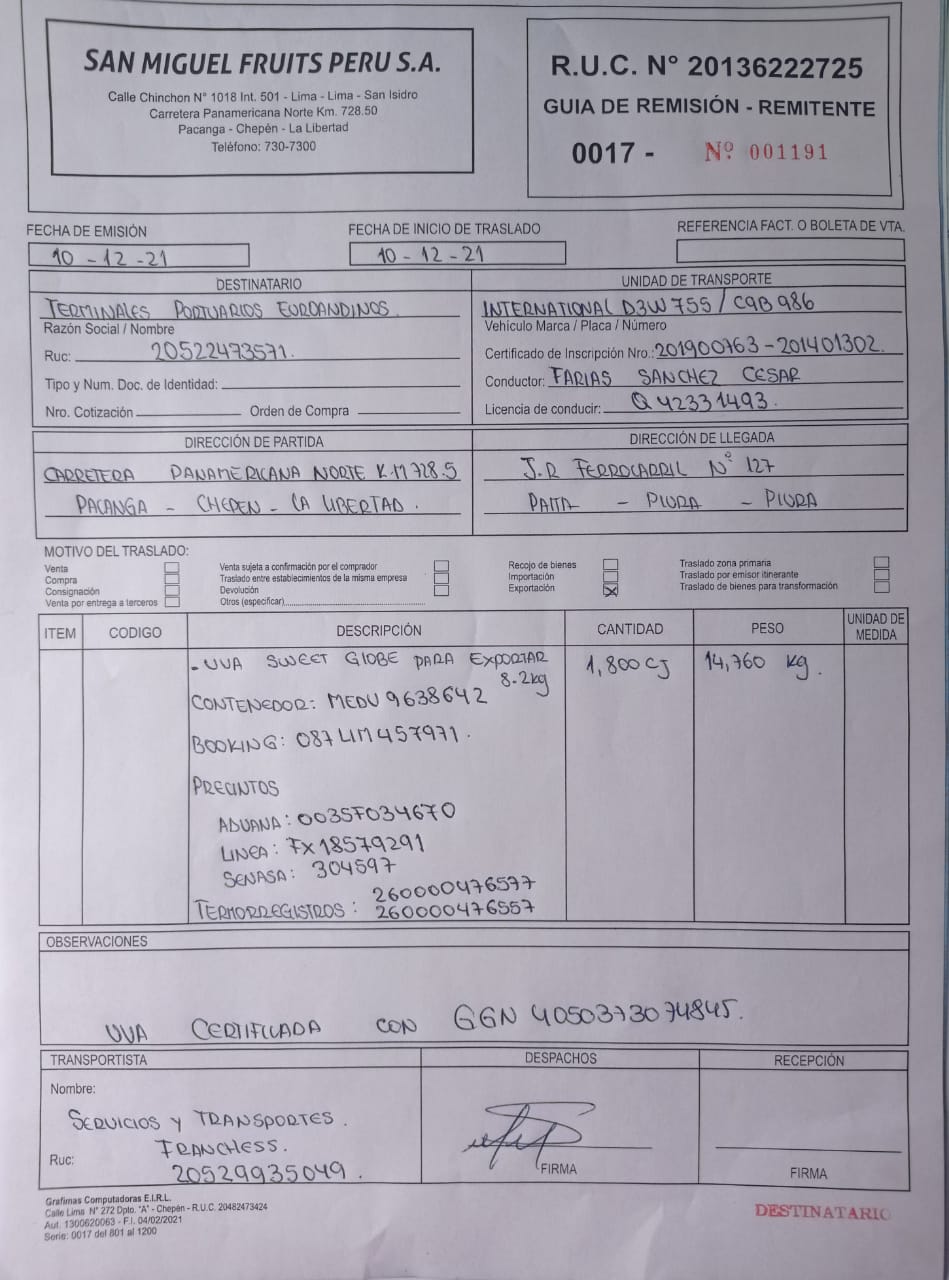 SAN MIGUEL FRUITS PERU S.A.
Calle Chinchon N° 1018 Int. 501 - Lima - Lima - San Isidro
Carretera Panamericana Norte Km. 728.50
Pacanga - Chepén - La Libertad
Teléfono: 730-7300
R.U.C. N° 20136222725
GUIA DE REMISIÓN - REMITENTE
0017 - Nº 001191
FECHA DE EMISIÓN
10 - 12 - 21
FECHA DE INICIO DE TRASLADO
10 - 12 - 21
REFERENCIA FACT. O BOLETA DE VTA.
DESTINATARIO
TERMINALES PORTUARIOS EUROANDINOS
Razón Social / Nombre
Ruc: 20522473571.
Tipo y Num. Doc. de Identidad:
Nro. Cotización Orden de Compra
UNIDAD DE TRANSPORTE
INTERNATIONAL D3W 755 / C9B 986
Vehículo Marca / Placa / Número
Certificado de Inscripción Nro.: 201900763 - 201401302.
Conductor: FARIAS SANCHEZ CESAR
Licencia de conducir: Q42331493.
DIRECCIÓN DE PARTIDA
CARRETERA PANAMERICANA NORTE K.M 728.5
PACANGA - CHEPEN - LA LIBERTAD.
DIRECCIÓN DE LLEGADA
J.R FERROCARRIL N° 127
PAITA - PIURA - PIURA
MOTIVO DEL TRASLADO:
Venta
Compra
Consignación
Venta por entrega a terceros
Venta sujeta a confirmación por el comprador
Traslado entre establecimientos de la misma empresa
Devolución
Otros (especificar)
Recojo de bienes
Importación
Exportación
Traslado zona primaria
Traslado por emisor itinerante
Traslado de bienes para transformación
ITEM CODIGO DESCRIPCIÓN CANTIDAD PESO UNIDAD DE MEDIDA
- UVA SWEET GLOBE PARA EXPORTAR 1,800 CJ 14,760 kg.
8.2kg
CONTENEDOR: MEDU 9638642
BOOKING: 087LIM457971.
PRECINTOS
ADUANA: 0035F034670
LINEA: FX18579291
SENASA: 304597
260000476577
TERMORREGISTROS: 260000476557
OBSERVACIONES
UVA CERTIFICADA CON GGN 4050373074845.
TRANSPORTISTA
Nombre:
SERVICIOS Y TRANSPORTES.
FRANCHESS.
Ruc: 20529935049.
DESPACHOS
FIRMA
RECEPCIÓN
FIRMA
Grafimas Computadoras E.I.R.L.
Calle Lima N° 272 Dpto. "A" - Chepén - R.U.C. 20482473424
Aut. 1300620063 - F.I. 04/02/2021
Serie: 0017 del 801 al 1200
DESTINATARIO